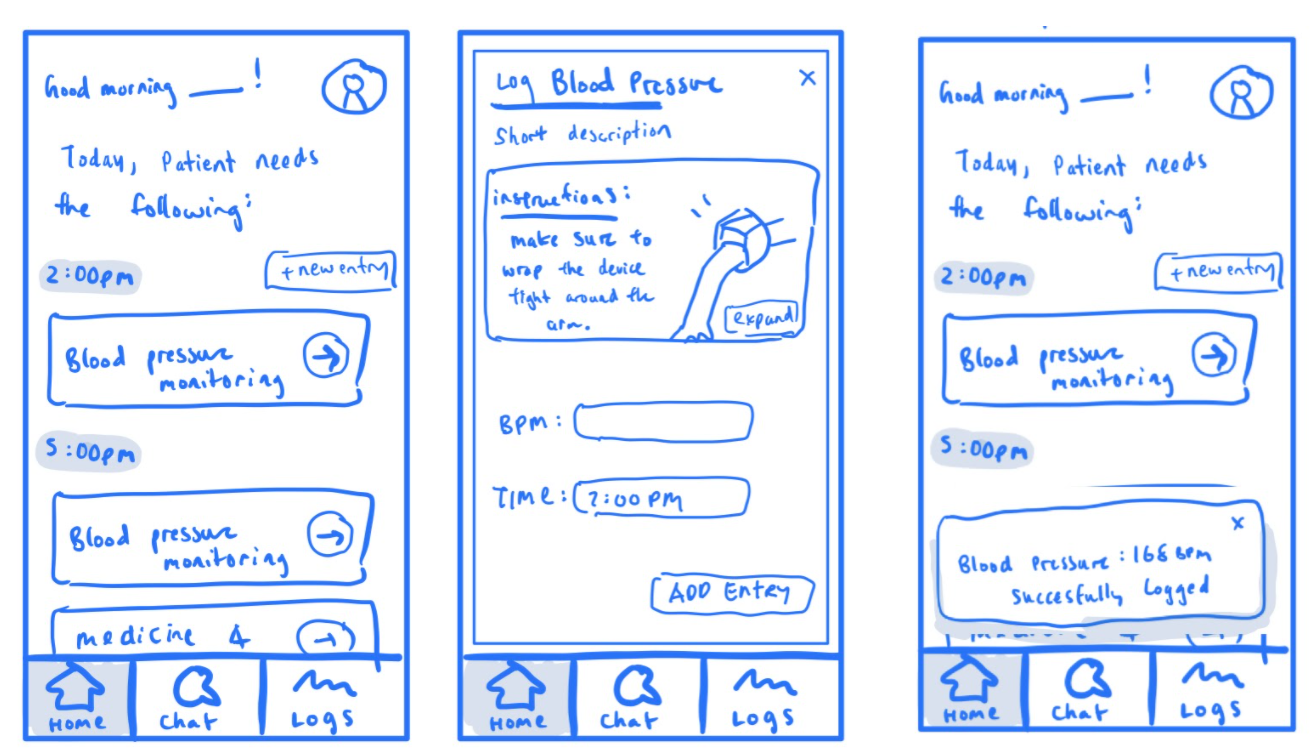 Good morning ____!
Today, Patient needs
the following:
2:00pm
+ new entry
Blood pressure
monitoring
5:00pm
Blood pressure
monitoring
medicine 4
Home
Chat
Logs
Log Blood Pressure
X
Short description
instructions:
make sure to
wrap the device
tight around the
arm.
expand
BPM:
TIME: 2:00 PM
ADD Entry
Home
Chat
Logs
Good morning ____!
Today, Patient needs
the following:
2:00pm
+ new entry
Blood pressure
monitoring
5:00pm
X
Blood Pressure: 168 BPM
Succesfully Logged
Home
Chat
Logs